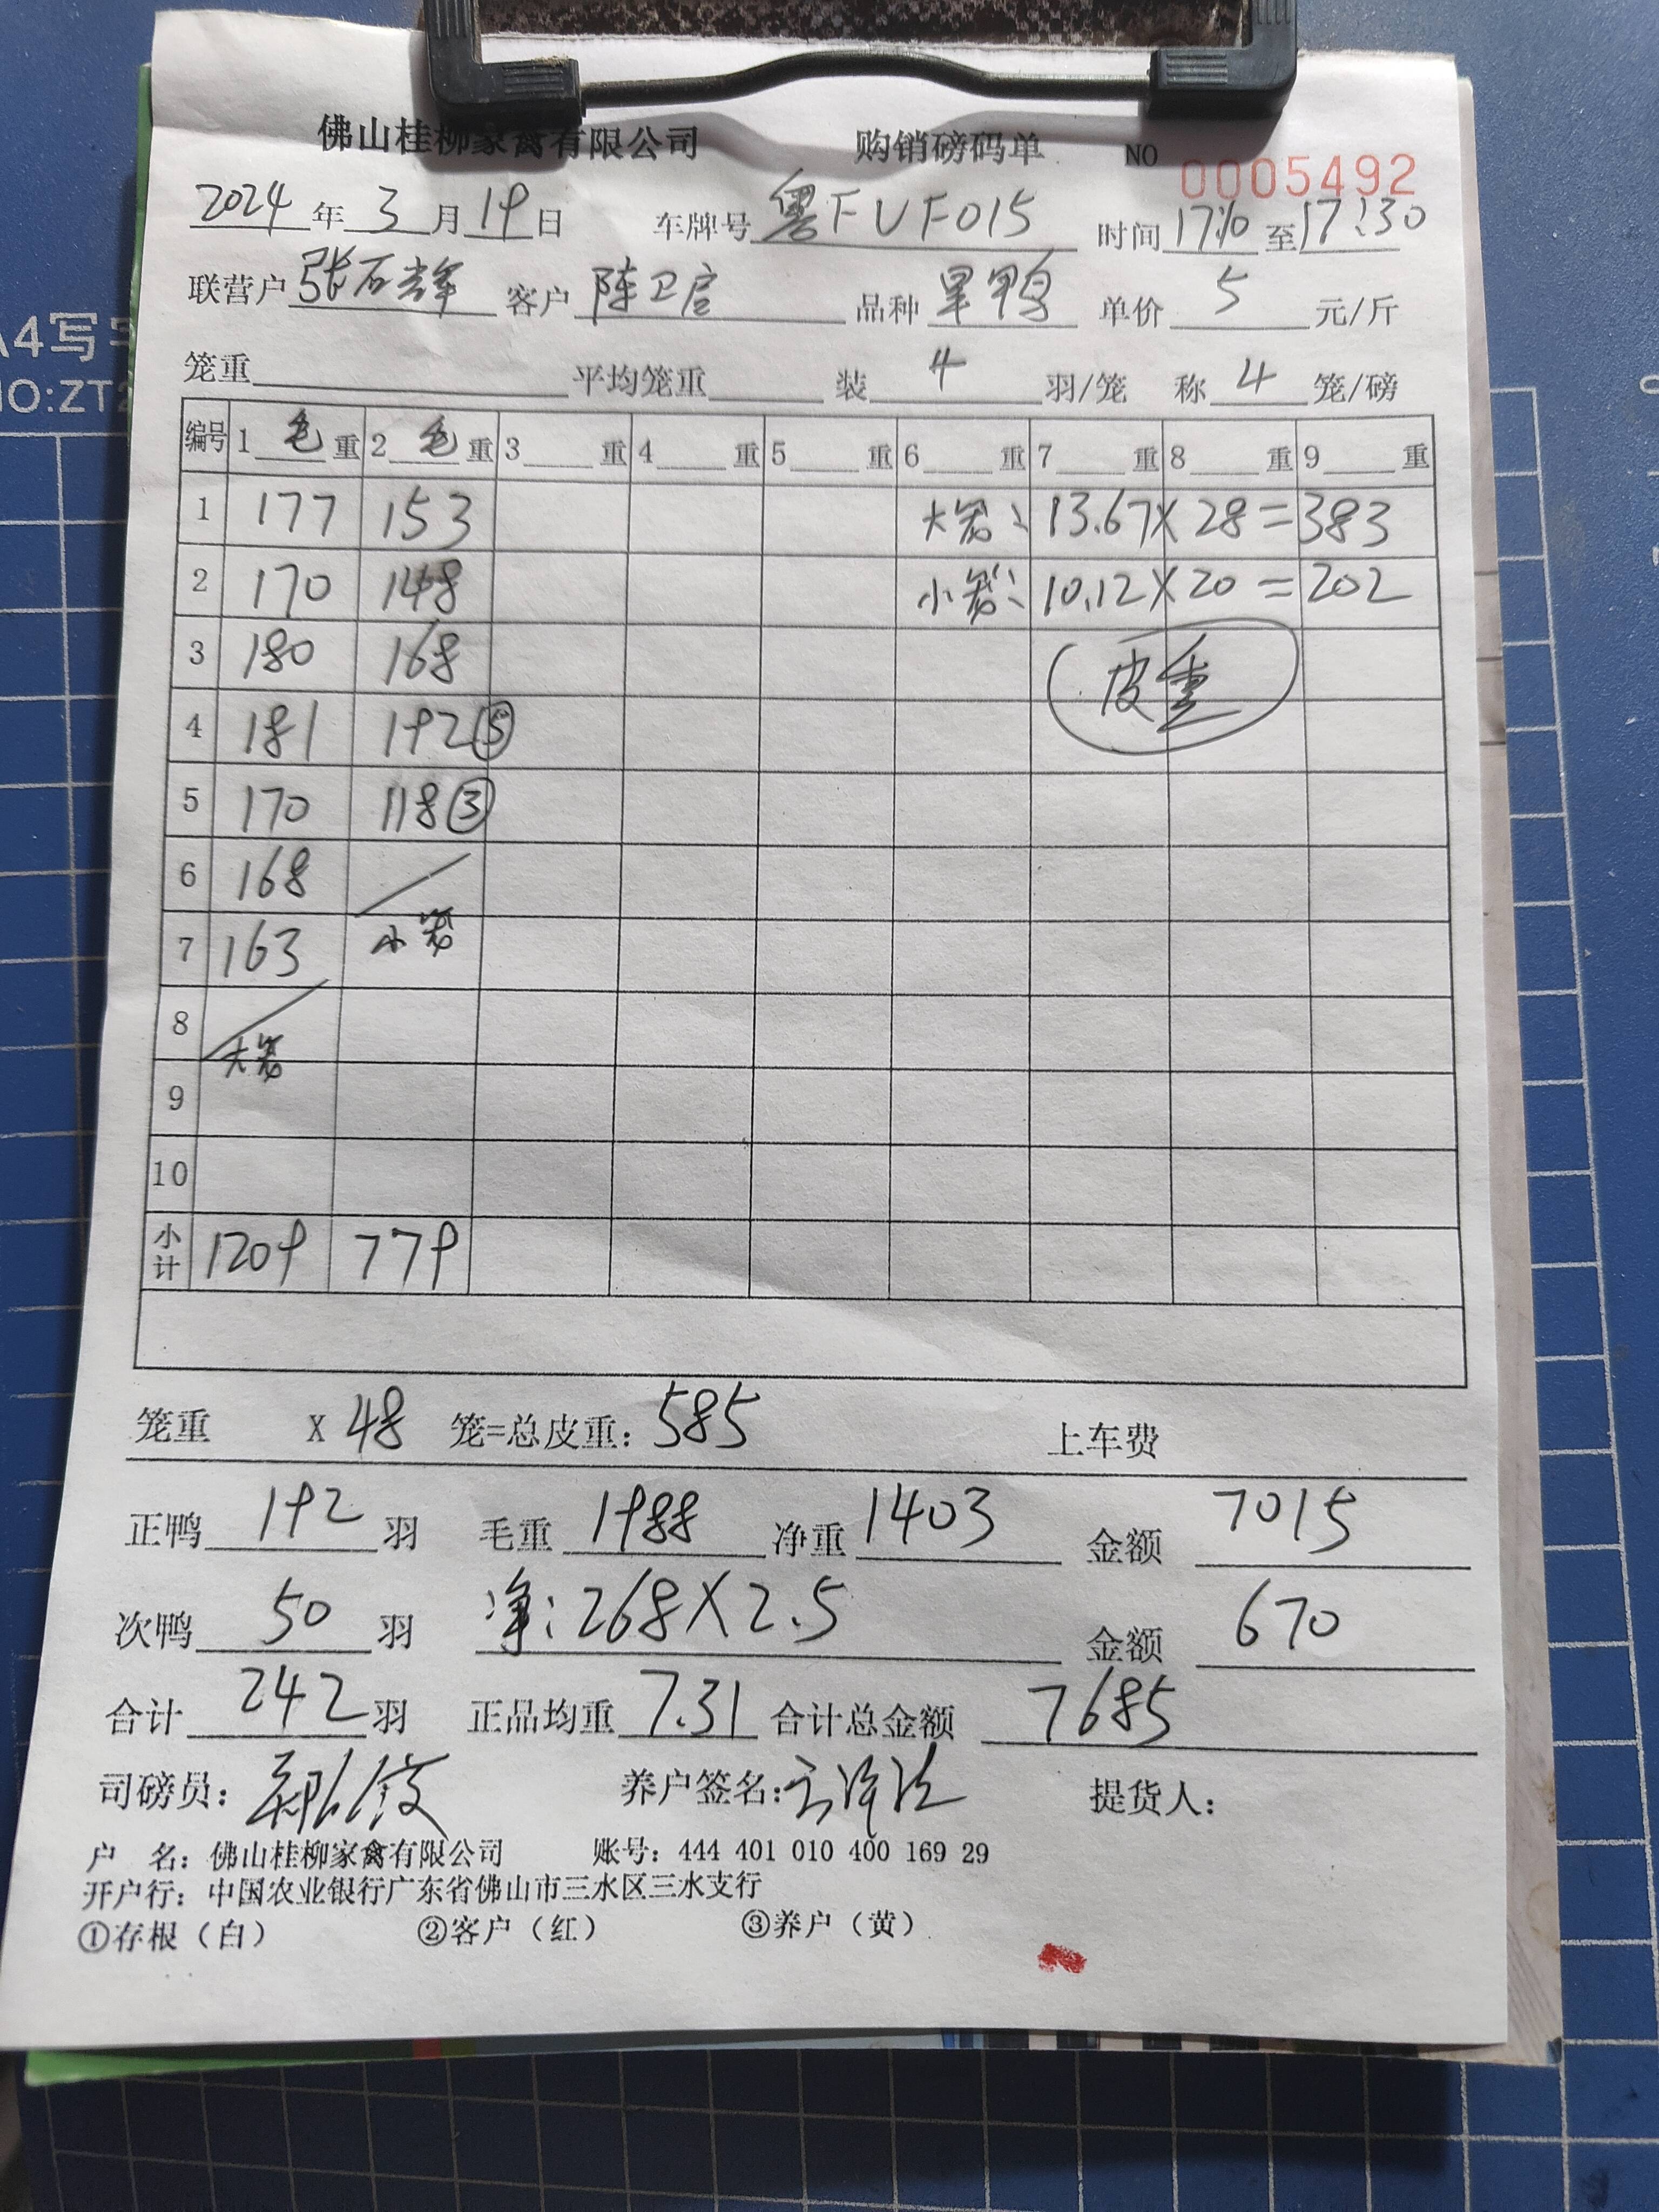 佛山桂柳家禽有限公司 购销磅码单 NO 0005492
2024 年 3 月 19 日 车牌号 粤FUF015 时间 17:10 至 17:30
联营户 张石辉 客户 陈卫 品种 单价 5 元/斤
笼重 平均笼重 装 4 羽/笼 称 4 笼/磅
编号 1 毛 重 2 毛 重 3 重 4 重 5 重 6 重 7 重 8 重 9 重
1 177 153 大笼: 13.67X28=383
2 170 148 小笼: 10.12X20=202
3 180 168 皮重
4 181 192 ⑤
5 170 118 ③
6 168
7 163 小笼
8 大笼
9
10
小计 1209 779
笼重 X 48 笼=总皮重: 585 上车费
正鸭 192 羽 毛重 1988 净重 1403 金额 7015
次鸭 50 羽 净: 268X2.5 金额 670
合计 242 羽 正品均重 7.31 合计总金额 7685
司磅员: 养户签名: 提货人:
户 名: 佛山桂柳家禽有限公司 账号: 444 401 010 400 169 29
开户行: 中国农业银行广东省佛山市三水区三水支行
①存根（白） ②客户（红） ③养户（黄）
A4写字
NO:ZT2